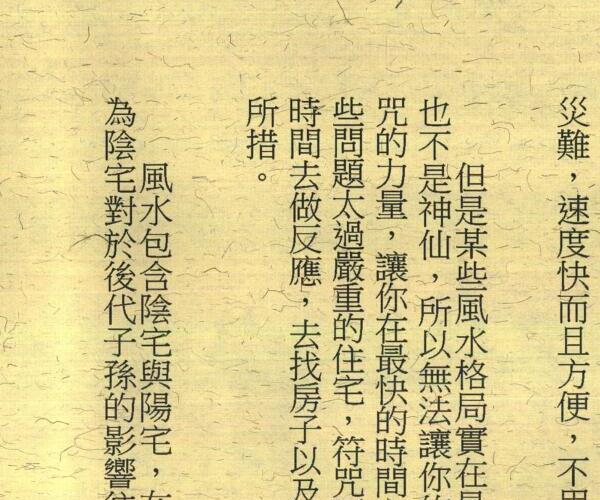 災難，速度快而且方便，不
但是某些風水格局實在
也不是神仙，所以無法讓你
咒的力量，讓你在最快的時間
些問題太過嚴重的住宅，符咒
時間去做反應，去找房子以及
所措。
風水包含陰宅與陽宅，
為陰宅對於後代子孫的影響